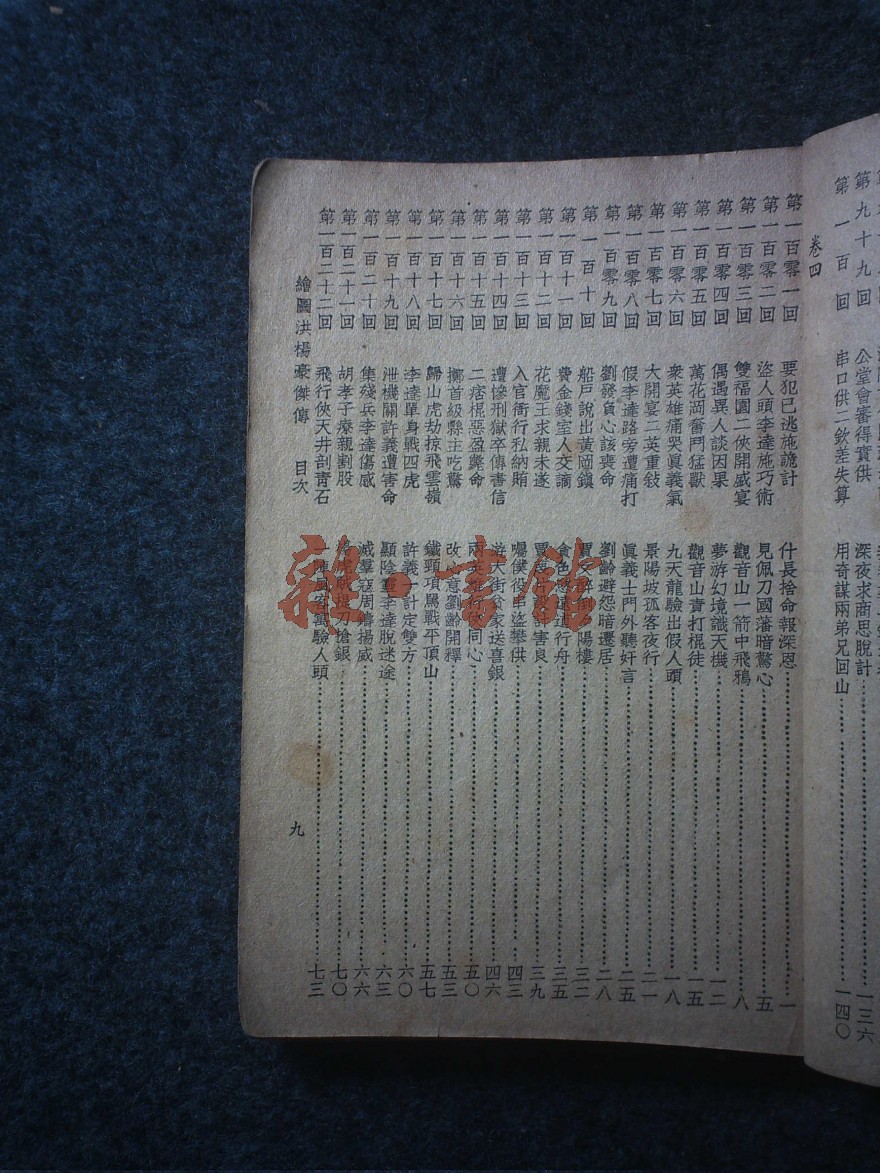 第九十九回 公堂會審得實供 深夜求商思脫計 一三六
第一百回 串口供二欽差失算 用奇謀兩弟兄回山 一四〇
卷四
第一百零一回 要犯已逃施詭計 什長捨命報深恩 一
第一百零二回 盜人頭李達施巧術 見佩刀國藩暗驚心 五
第一百零三回 雙福園二俠開威宴 觀音山一箭中飛鴉 八
第一百零四回 偶遇異人談因果 夢游幻境識天機 一二
第一百零五回 萬花岡奮鬥猛獸 觀音山責打棍徒 一五
第一百零六回 衆英雄痛哭眞義氣 九天龍驗出假人頭 一八
第一百零七回 大開宴二英重敍 景陽坡孤客夜行 二一
第一百零八回 假李達路旁遭痛打 眞義士門外聽奸言 二五
第一百零九回 劉發負心該喪命 劉齡避怨暗遷居 二八
第一百十回 船戶說出黃岡鎭 陽樓 三二
第一百十一回 費金錢室人交謫 行舟 三五
第一百十二回 花魔王求親未遂 害良 三九
第一百十三回 入官衙行私納賄 囑僕役串盜攀供 四三
第一百十四回 遭慘刑獄卒傳書信 游大街貧家送喜銀 四六
第一百十五回 二痞棍惡盈斃命 兩英雄行俠同心 五〇
第一百十六回 擲首級縣主吃驚 改心意劉齡開釋 五三
第一百十七回 歸山虎劫掠飛雲嶺 鐵頸項罵戰平頂山 五七
第一百十八回 李達單身戰四虎 許義一計定雙方 六〇
第一百十九回 泄機關許義遭害命 顯陰靈李達脫迷途 六三
第一百二十回 集殘兵李達傷感 滅羣寇周濤揚威 六六
第一百二十一回 胡孝子療親割股 提刀搶銀 七〇
第一百二十二回 飛行俠天井剖靑石 寓驗人頭 七三
繪圖洪楊豪傑傳 目次 九
雜·書館